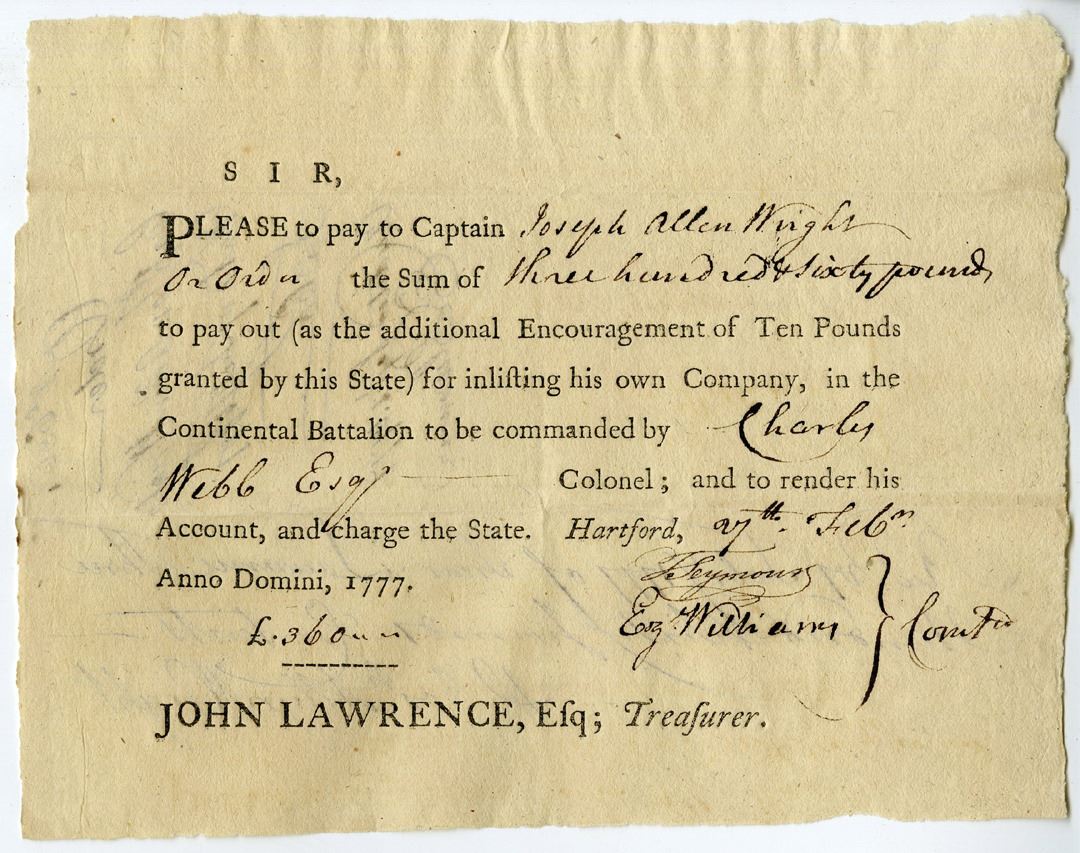 S I R,
PLEASE to pay to Captain Joseph Allen Wright
Or Order the Sum of three hundred & sixty pounds
to pay out (as the additional Encouragement of Ten Pounds
granted by this State) for inliſting his own Company, in the
Continental Battalion to be commanded by Charles
Webb Esqr Colonel; and to render his
Account, and charge the State. Hartford, 27th. Febry
Anno Domini, 1777.
T Seymour
£.360 " "
Ezl Williams } Comtee
JOHN LAWRENCE, Eſq; Treaſurer.